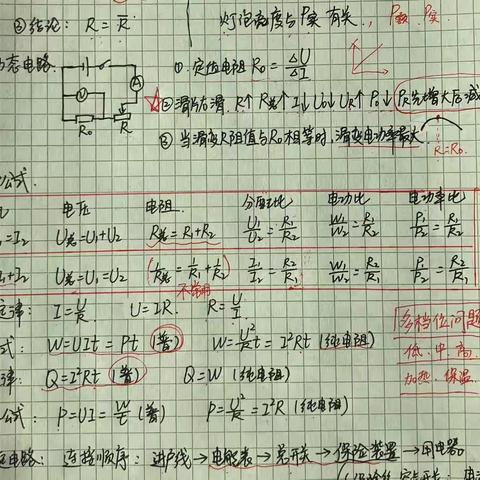 ③结论: R = R̄
灯泡亮度与P实有关, P额 P实
动态电路
①. 定值电阻 R₀ = ΔU/ΔI
☆②滑片右滑 R↑ R总↑ I↓ U₀↓ U_R↑ P₀↓ P_R先增大后减
③ 当滑变R阻值与R₀相等时, 滑变电功率最大
R=R₀
V A R₀ R
公式.
电压 电阻 分压比 电功比 电功率比
=I₂ U总=U₁+U₂ R总=R₁+R₂ U₁/U₂=R₁/R₂ W₁/W₂=R₁/R₂ P₁/P₂=R₁/R₂
I₁+I₂ U总=U₁=U₂ (1/R总=1/R₁+1/R₂) I₁/I₂=R₂/R₁ W₁/W₂=R₂/R₁ P₁/P₂=R₂/R₁
不常用
定律: I=U/R U=IR. R=U/I
式: W=UIt=Pt (普) W=U²/R t=I²Rt (纯电阻)
律: Q=I²Rt (普) Q=W (纯电阻)
公式: P=UI=W/t (普) P=U²/R=I²R (纯电阻)
多档位问题
低.中.高.
加热.保温
电路: 连接顺序: 进户线→电能表→总开关→保险装置→用电器